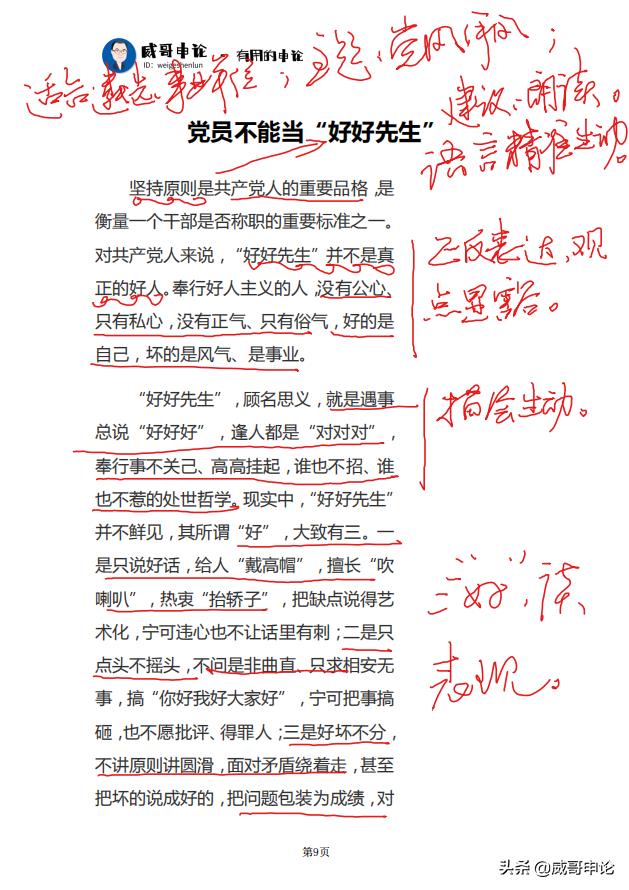 威哥申论
ID：weigeshenlun
有用的申论
适合:遴选、事业单位; 主题:党风作风;
建议:朗读。
语言精准生动。
党员不能当“好好先生”
坚持原则是共产党人的重要品格，是
衡量一个干部是否称职的重要标准之一。
对共产党人来说，“好好先生”并不是真
正的好人。奉行好人主义的人，没有公心、
只有私心，没有正气、只有俗气，好的是
自己，坏的是风气、是事业。
正反表达，观
点显豁。
“好好先生”，顾名思义，就是遇事
总说“好好好”，逢人都是“对对对”，
奉行事不关己、高高挂起，谁也不招、谁
也不惹的处世哲学。现实中，“好好先生”
并不鲜见，其所谓“好”，大致有三。一
是只说好话，给人“戴高帽”，擅长“吹
喇叭”，热衷“抬轿子”，把缺点说得艺
术化，宁可违心也不让话里有刺；二是只
点头不摇头，不问是非曲直、只求相安无
事，搞“你好我好大家好”，宁可把事搞
砸，也不愿批评、得罪人；三是好坏不分，
不讲原则讲圆滑，面对矛盾绕着走，甚至
把坏的说成好的，把问题包装为成绩，对
描绘生动。
三“好”，读
表现。
第9页
头条 @威哥申论